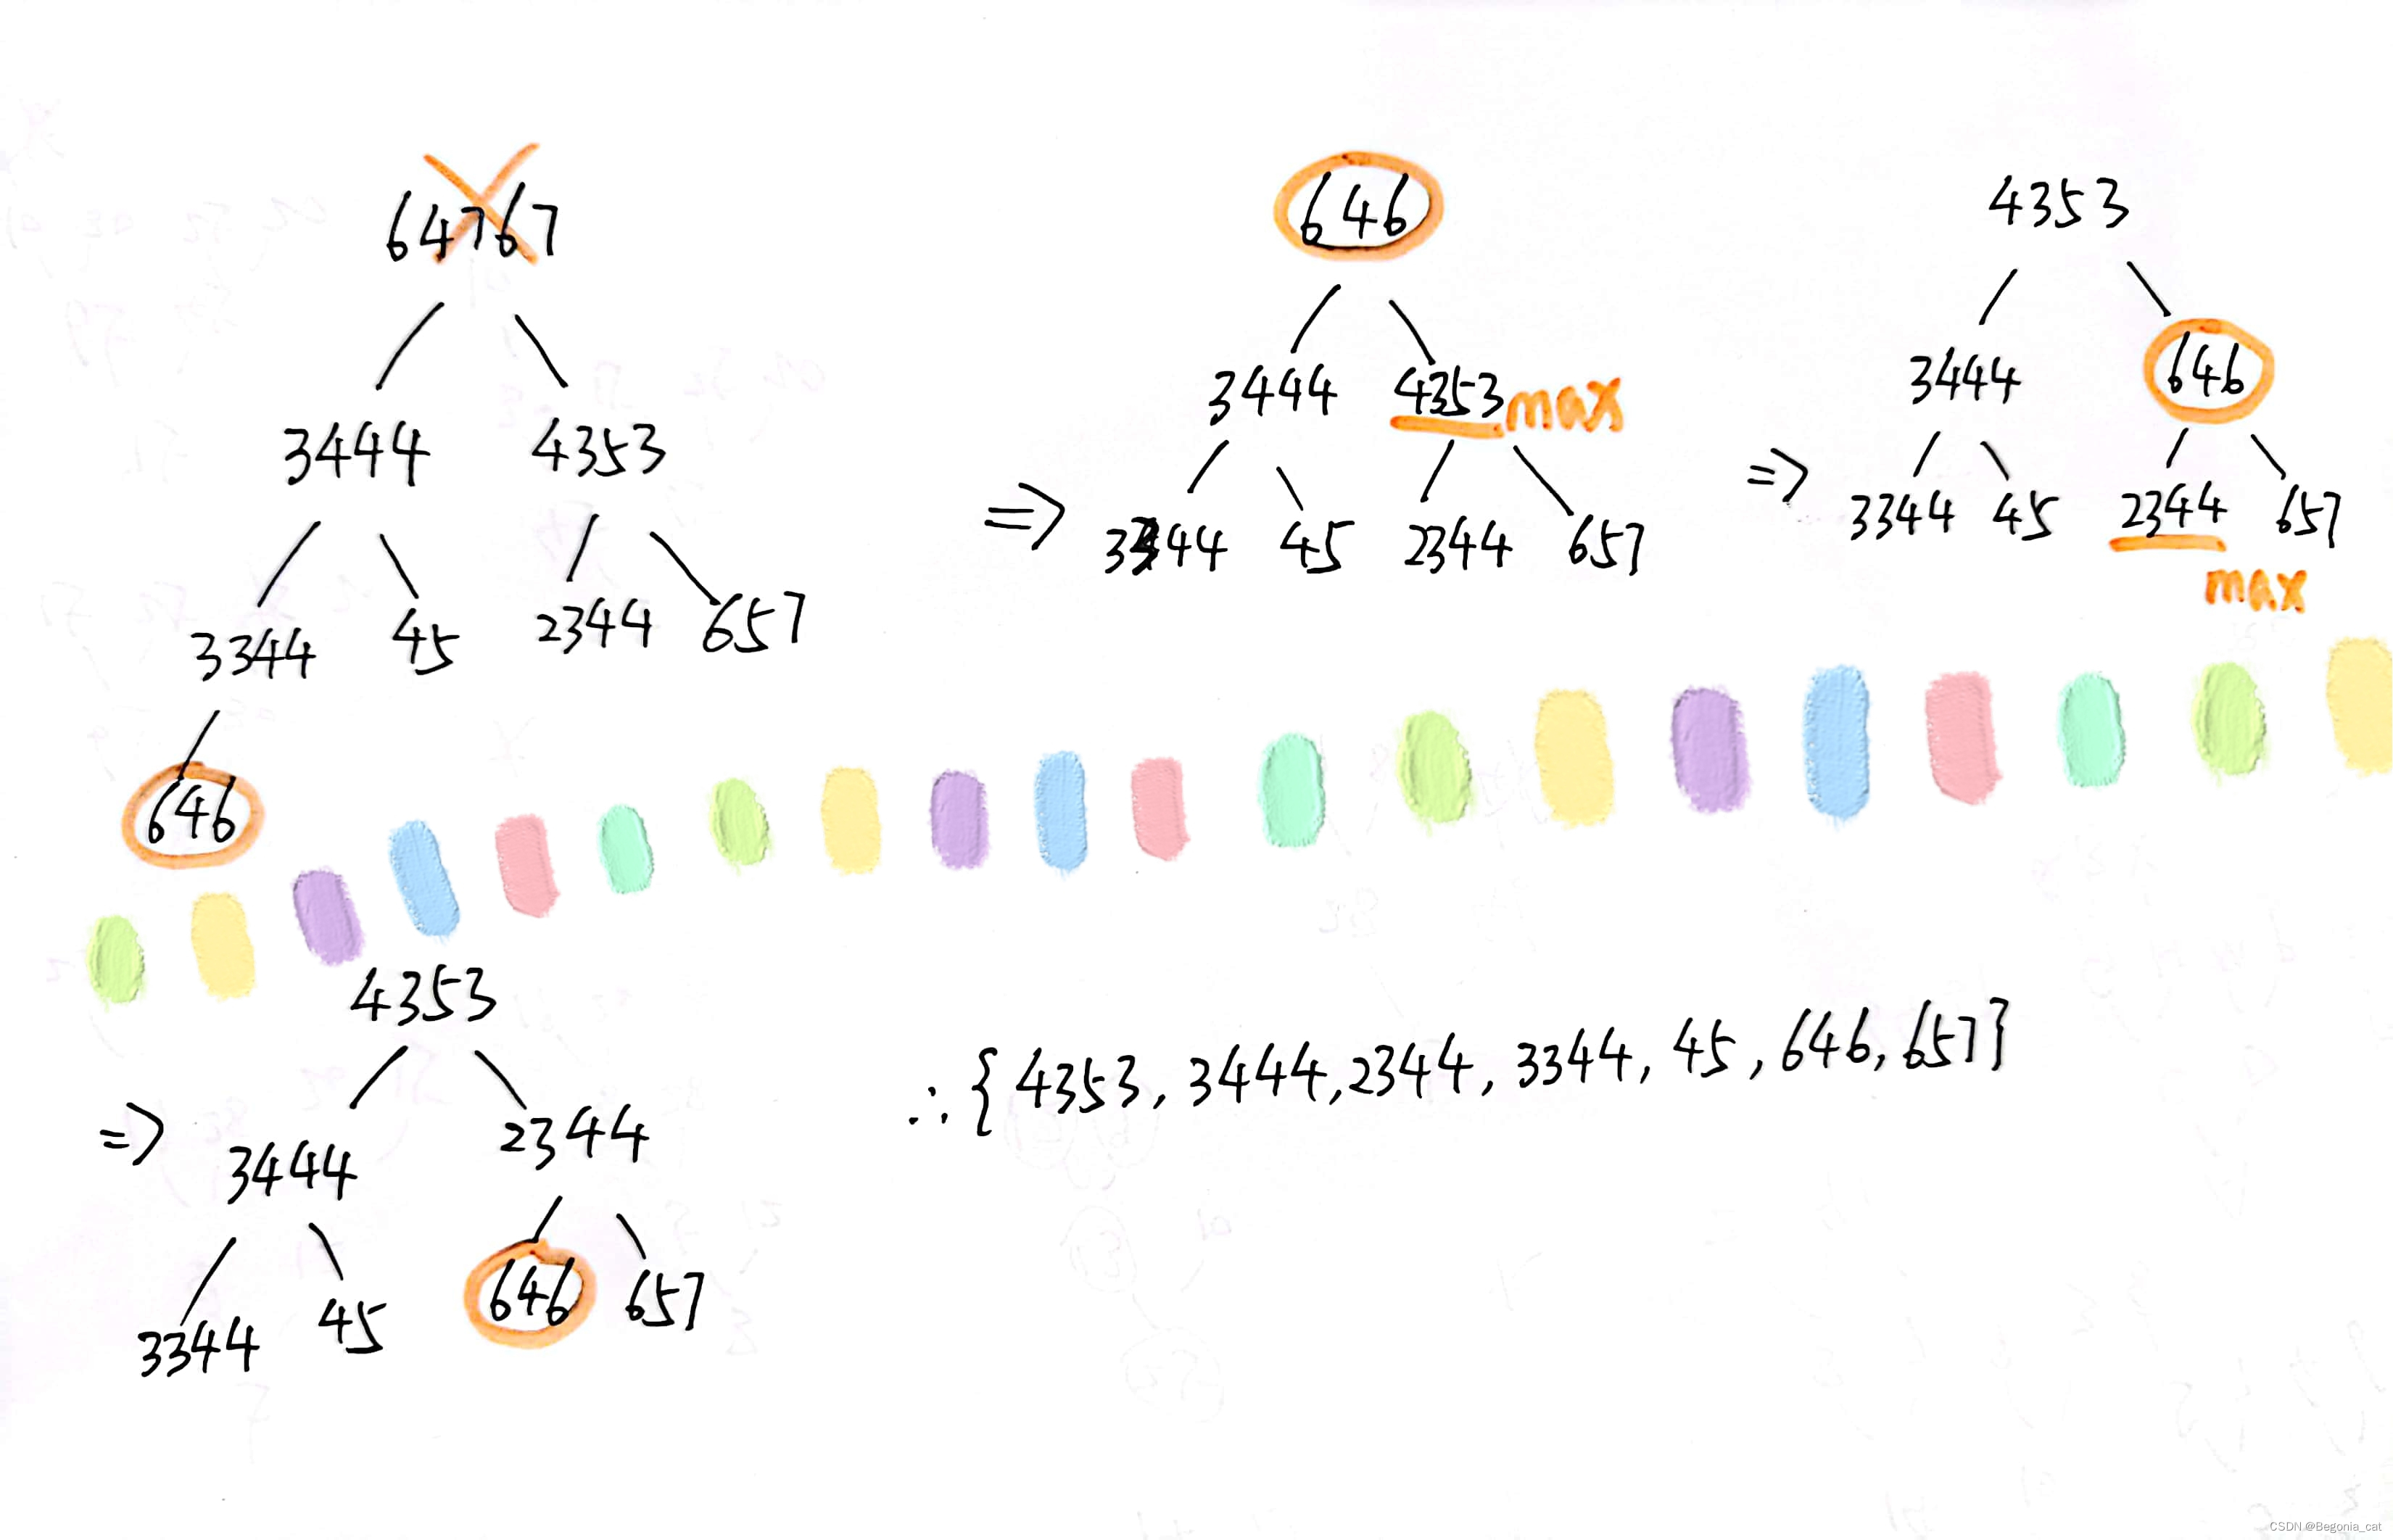 64767
3444 4353
3344 45 2344 657
646
=>
646
3444 4353 max
3344 45 2344 657
=>
4353
3444 646
3344 45 2344 657
max
=>
4353
3444 2344
3344 45 646 657
∴ { 4353, 3444, 2344, 3344, 45, 646, 657}
CSDN @Begonia_cat